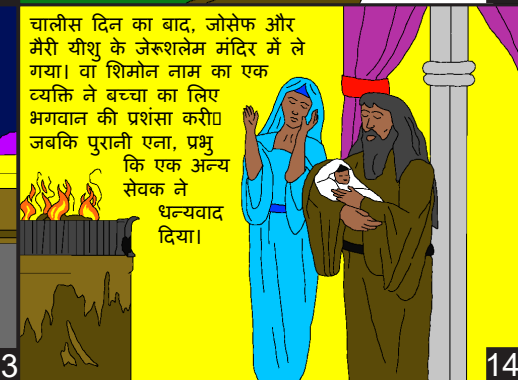 चालीस दिन का बाद, जोसेफ और
मैरी यीशु के जेरूशलेम मंदिर में ले
गया। वा शिमोन नाम का एक
व्यक्ति ने बच्चा का लिए
भगवान की प्रशंसा करी▯
जबकि पुरानी एना, प्रभु
कि एक अन्य
सेवक ने
धन्यवाद
दिया।
3
14